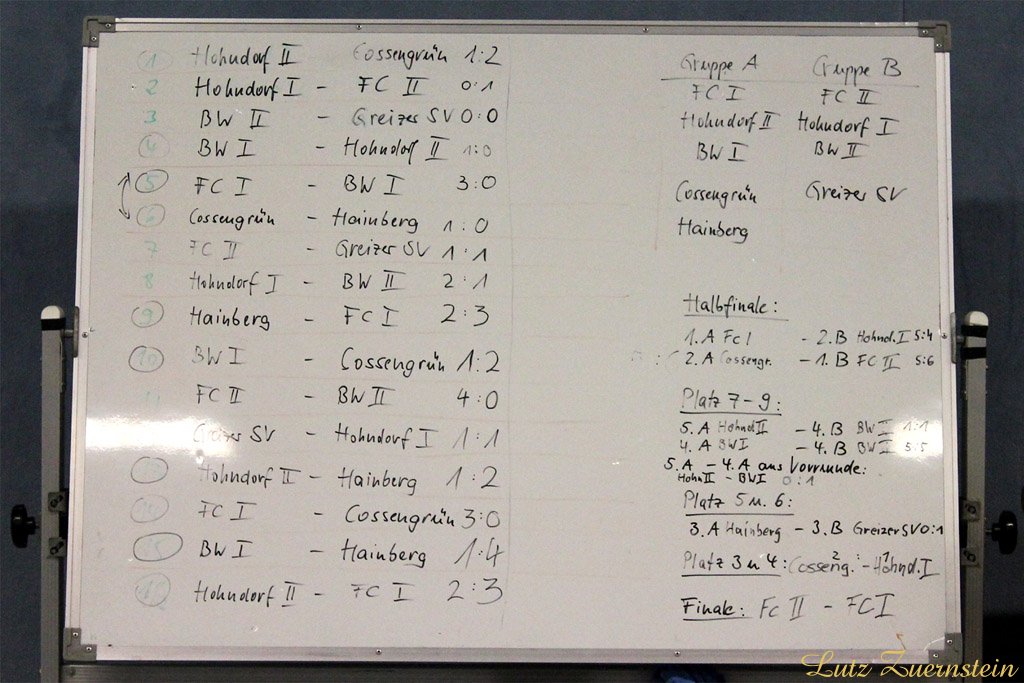 1 Hohndorf II Cossengrün 1:2
2 Hohndorf I - FC II 0:1
3 BW II - Greizer SV 0:0
4 BW I - Hohndorf II 1:0
5 FC I - BW I 3:0
6 Cossengrün - Hainberg 1:0
7 FC II - Greizer SV 1:1
8 Hohndorf I - BW II 2:1
9 Hainberg - FC I 2:3
10 BW I - Cossengrün 1:2
11 FC II - BW II 4:0
Greizer SV - Hohndorf I 1:1
Hohndorf II - Hainberg 1:2
FC I - Cossengrün 3:0
15 BW I - Hainberg 1:4
Hohndorf II - FC I 2:3
Gruppe A Gruppe B
FC I FC II
Hohndorf II Hohndorf I
BW I BW II
Cossengrün Greizer SV
Hainberg
Halbfinale:
1. A FC I - 2. B Hohnd. I 5:4
2. A Cossengr. - 1. B FC II 5:6
Platz 7-9:
5. A Hohnd II - 4. B BW II 1:1
4. A BW I - 4. B BW II 5:5
5. A - 4. A aus Vorrunde:
Hohn II - BW I 0:1
Platz 5 u. 6:
3. A Hainberg - 3. B Greizer SV 0:1
Platz 3 u 4: Cosseng. - Hohnd. I 2 : 1
Finale: FC II - FC I
Lutz Zuernstein